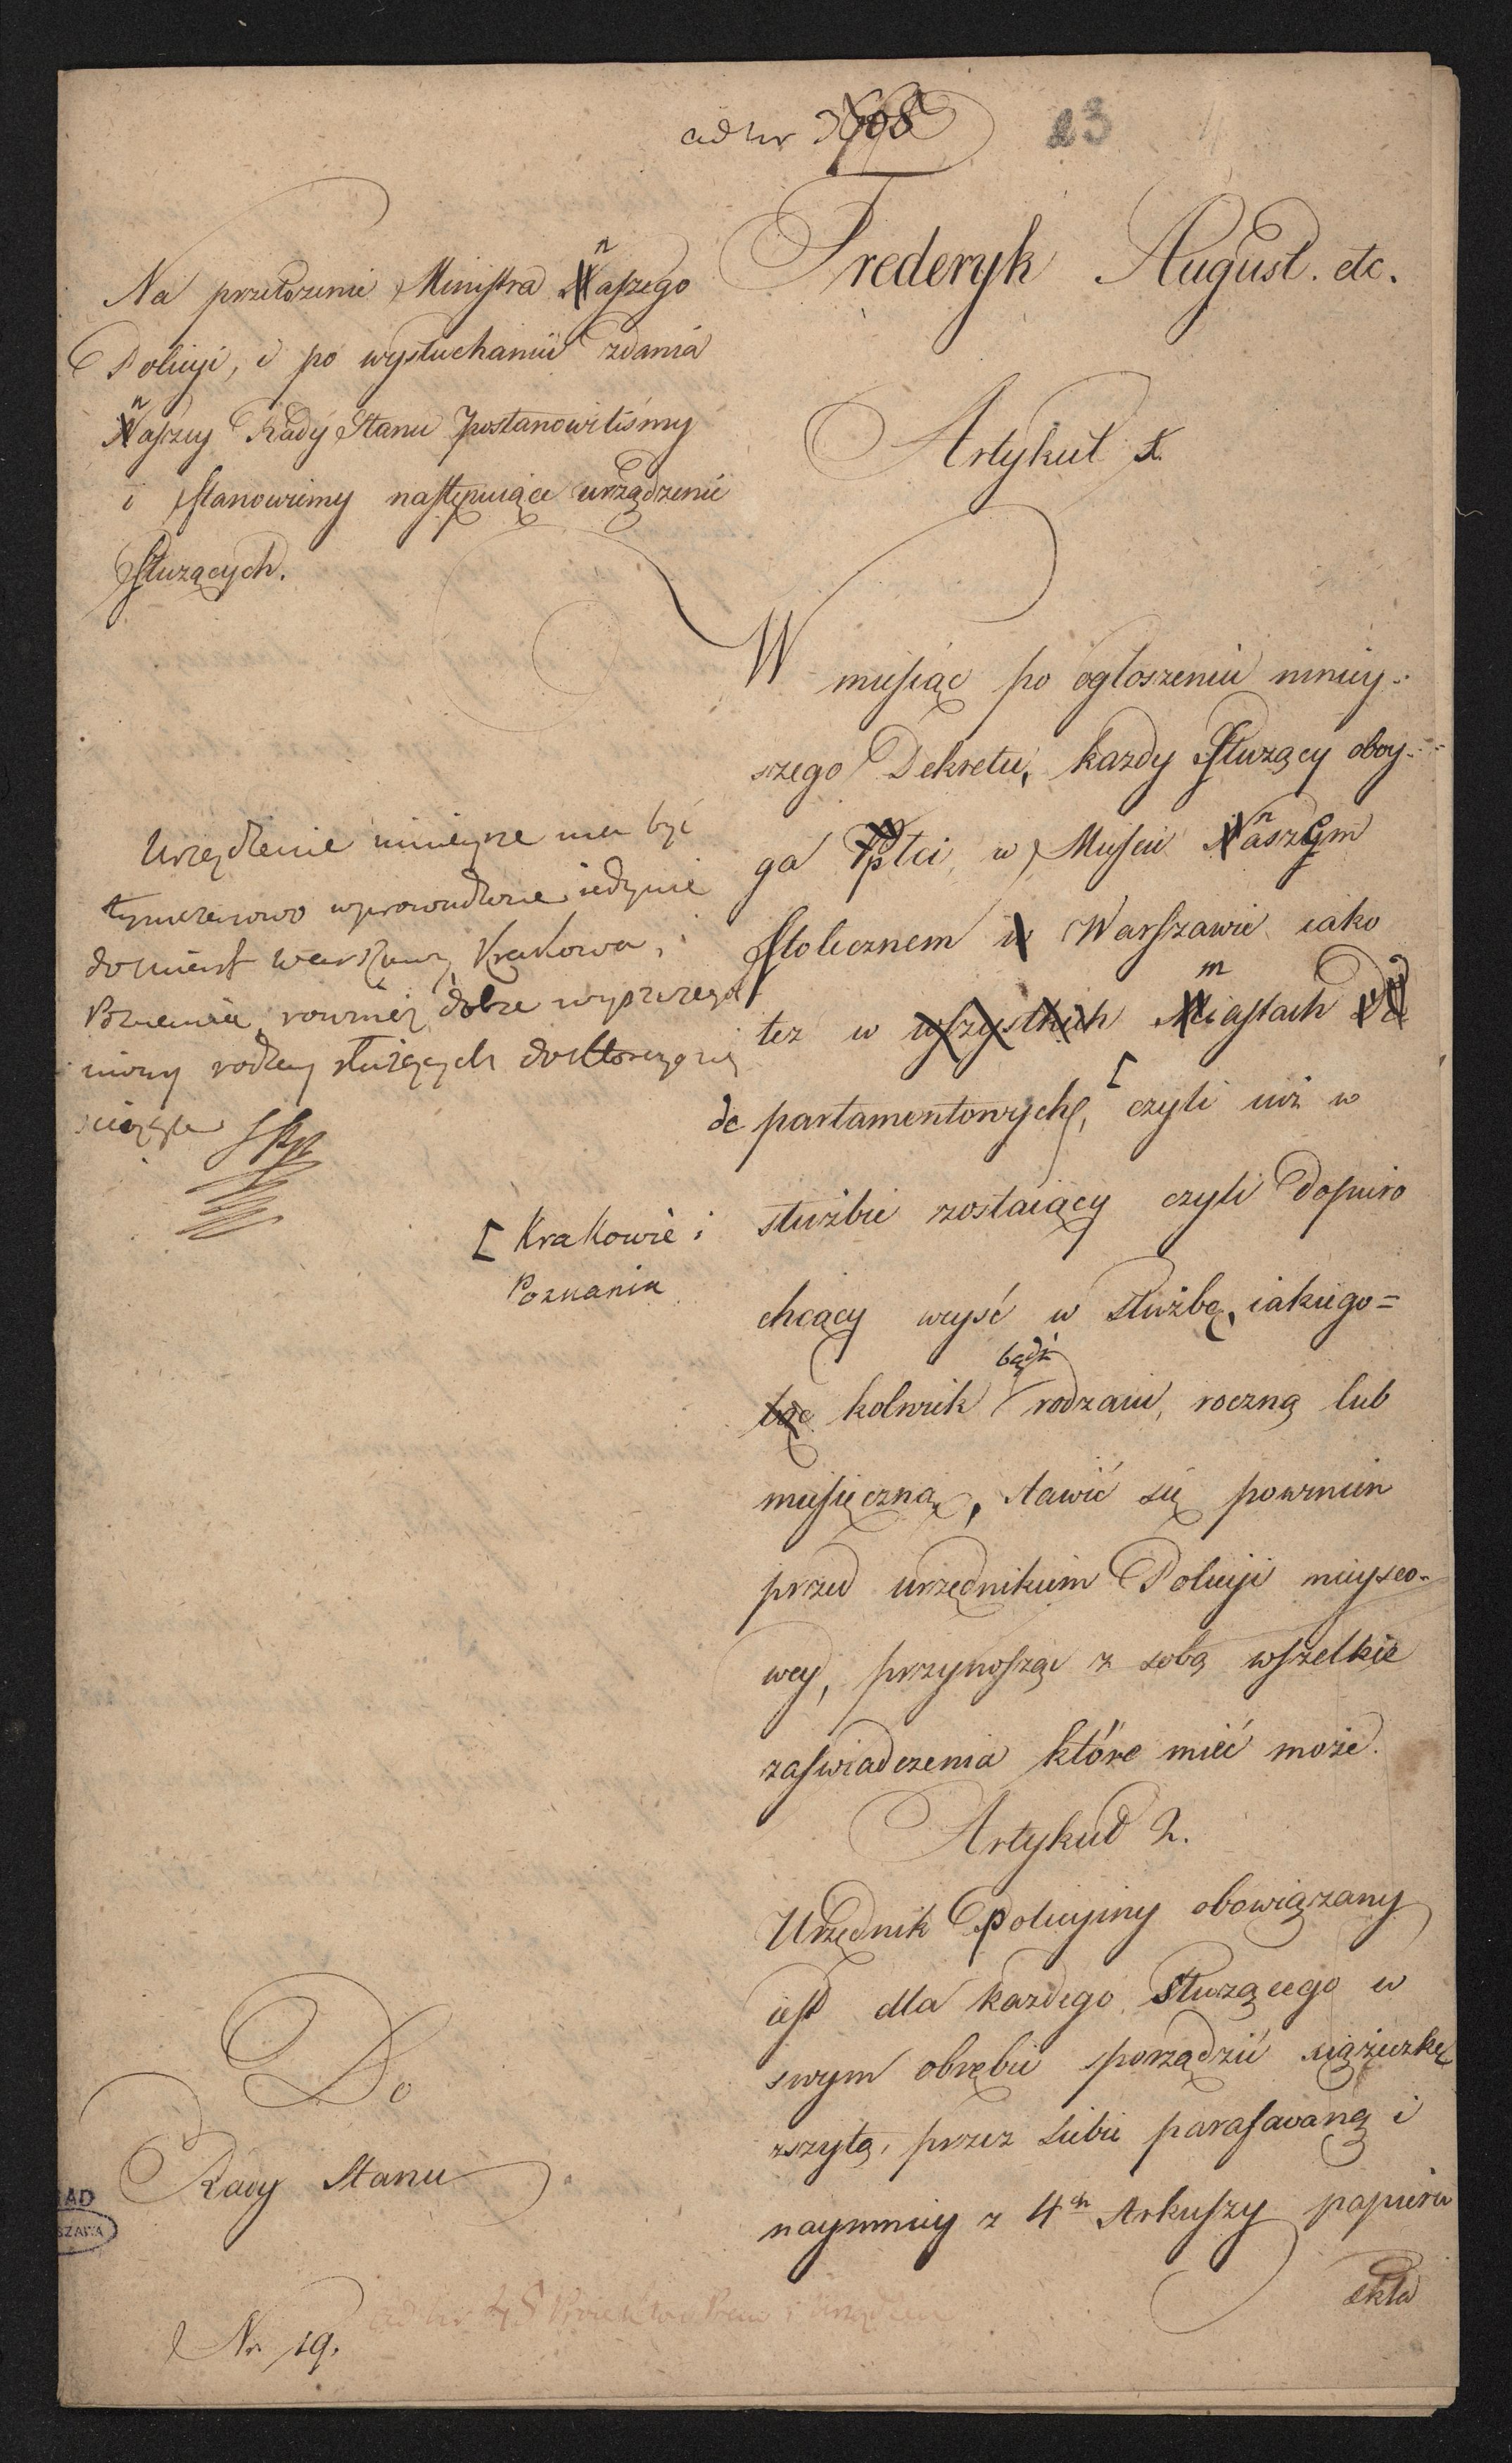 ad nr
23
Frederyk August. etc.
Na przełożenie Ministra naszego
Policyi, i po wysłuchaniu zdania
naszey Rady Stanu postanowiliśmy
i stanowiemy następuiące urządzenie
służących.
Artykuł 1.
W miesiąc po ogłoszeniu niniey-
szego Dekretu, każdy służący oboy-
ga płci, w Mieście naszem
stolecznem Warszawie iako
też w miastach
departamentowych, czyli iuż w
służbie zostaiący czyli dopiero
chcący weyść w służbę, iakiego=
kolwiek bądź rodzaiu, roczną lub
miesięczną, stawić się powinien
przed urzędnikiem Policyi mieysco-
wey, przynosząc z sobą wszelkie
zaświadczenia które mieć może.
Urządzenie ninieysze ma być
tymczasowo wprowadzone iedynie
do miast Warszawy, Krakowa, i
Poznania, rownież
służących
[ Krakowie i
Poznaniu
Artykuł 2.
Urzędnik policyiny obowiązany
iest dla każdego służącego w
swym obrębie sporządzić xiążeczkę
zszytą, przez siebie parafowaną i
naymniey z 4ch Arkuszy papieru
skła
Do
Rady Stanu
Nr 19.